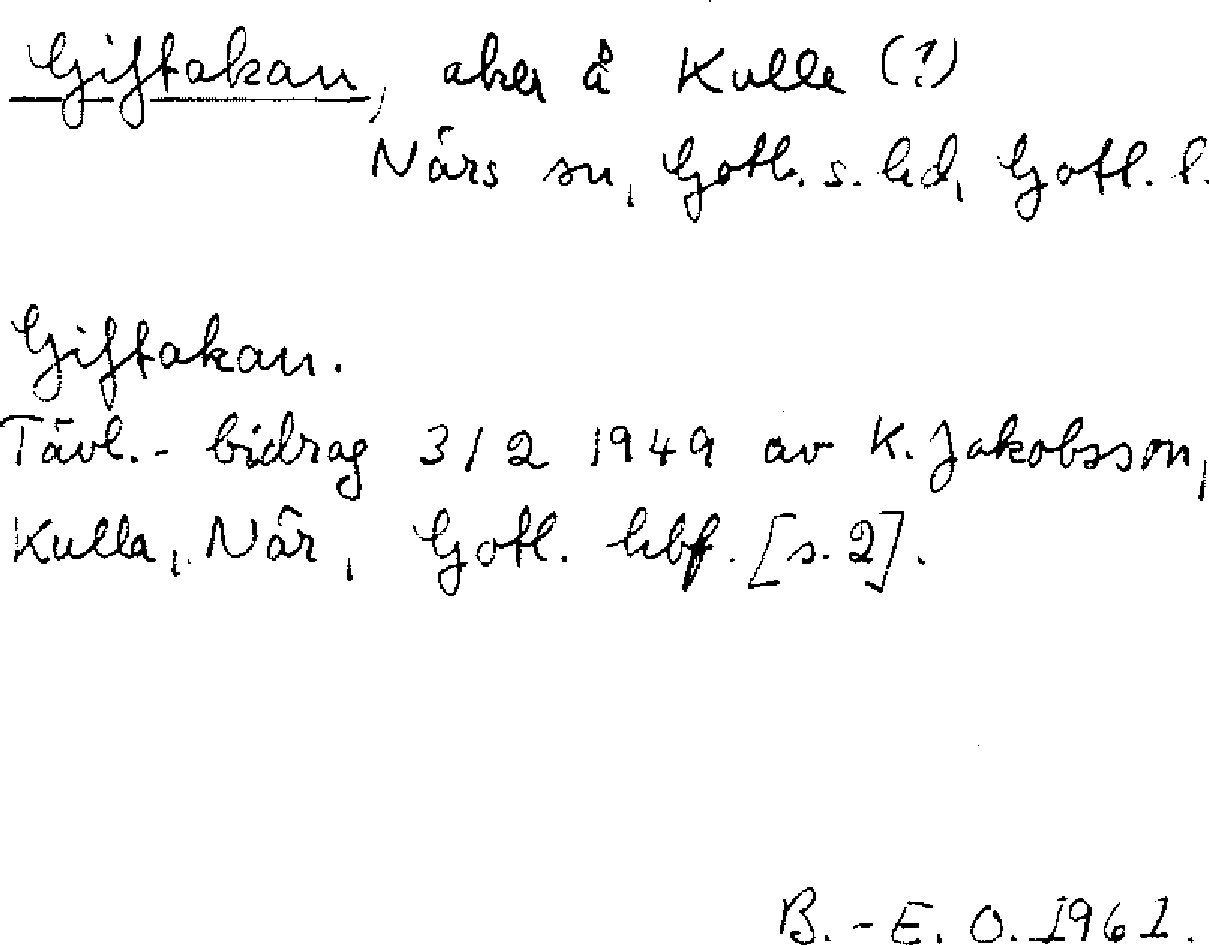 Giftakau, åker å Kulle (?)
Närs sn, Gotl. s. hd, Gotl. l.
Giftakau.
Tävl.-bidrag 3/2 1949 av K. Jakobsson,
Kulla, När, Gotl. hbf. [s. 2].
B.-E. O. 1961.